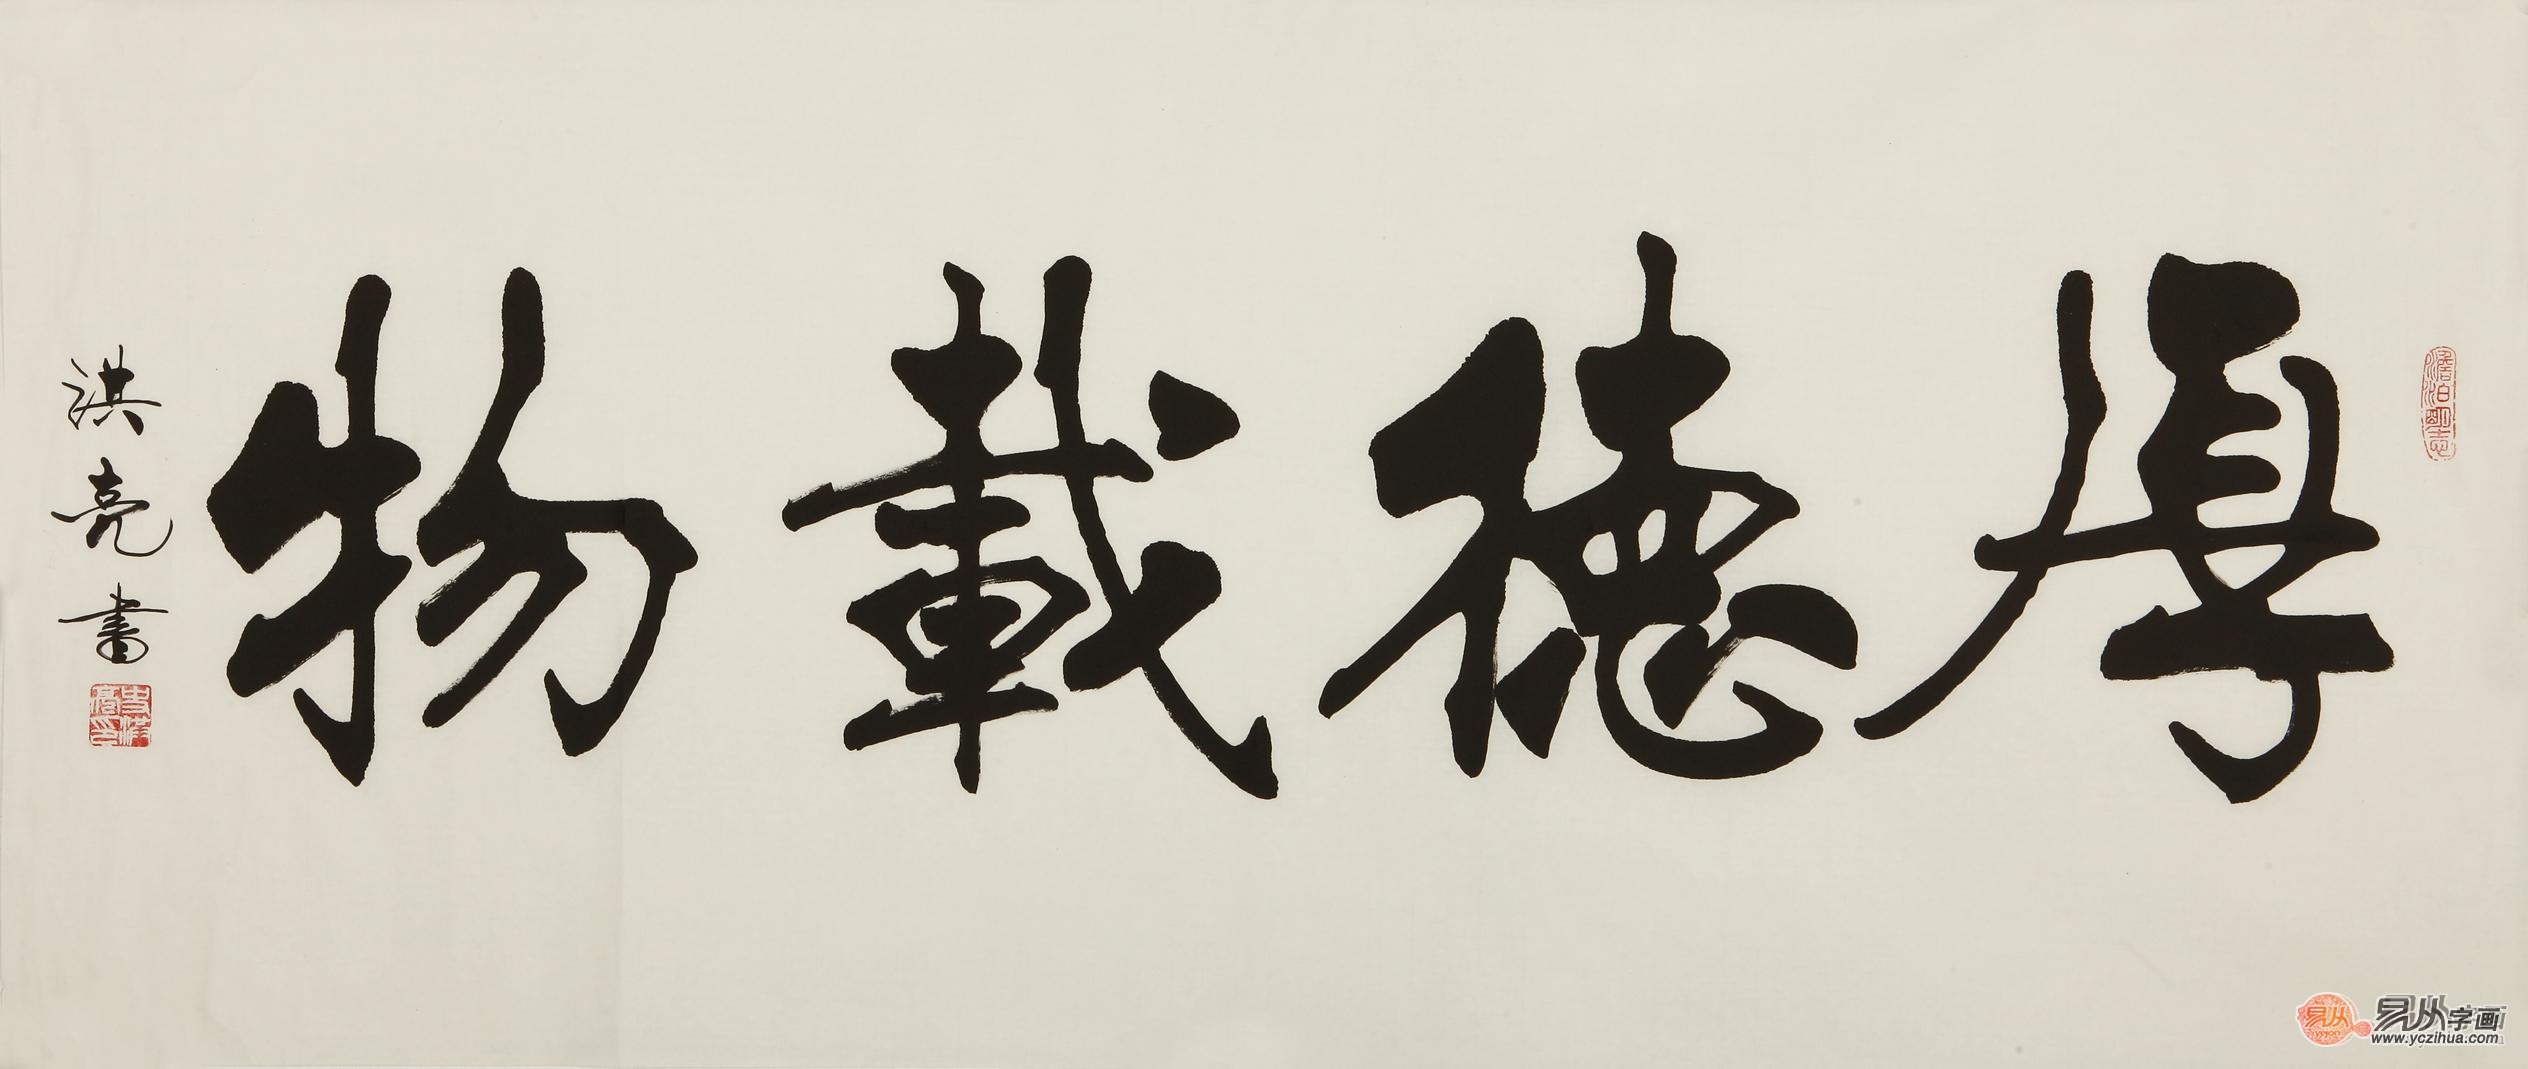 厚德載物
淇亮書
澹泊明志
易从字画
www.yczihua.com